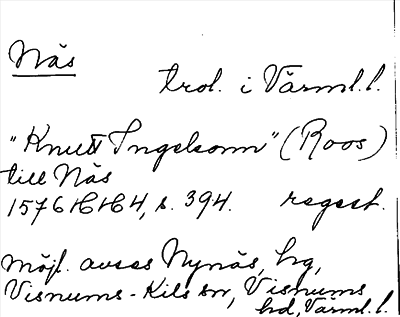 Näs
trol. i Värml.l.
"Knutt Ingelsonn" (Roos)
till Näs
1576 HH4, s. 394. regest.
möjl. avses Nynäs, hg,
Visnums-Kils sn, Visnums
hd, Värml.l.